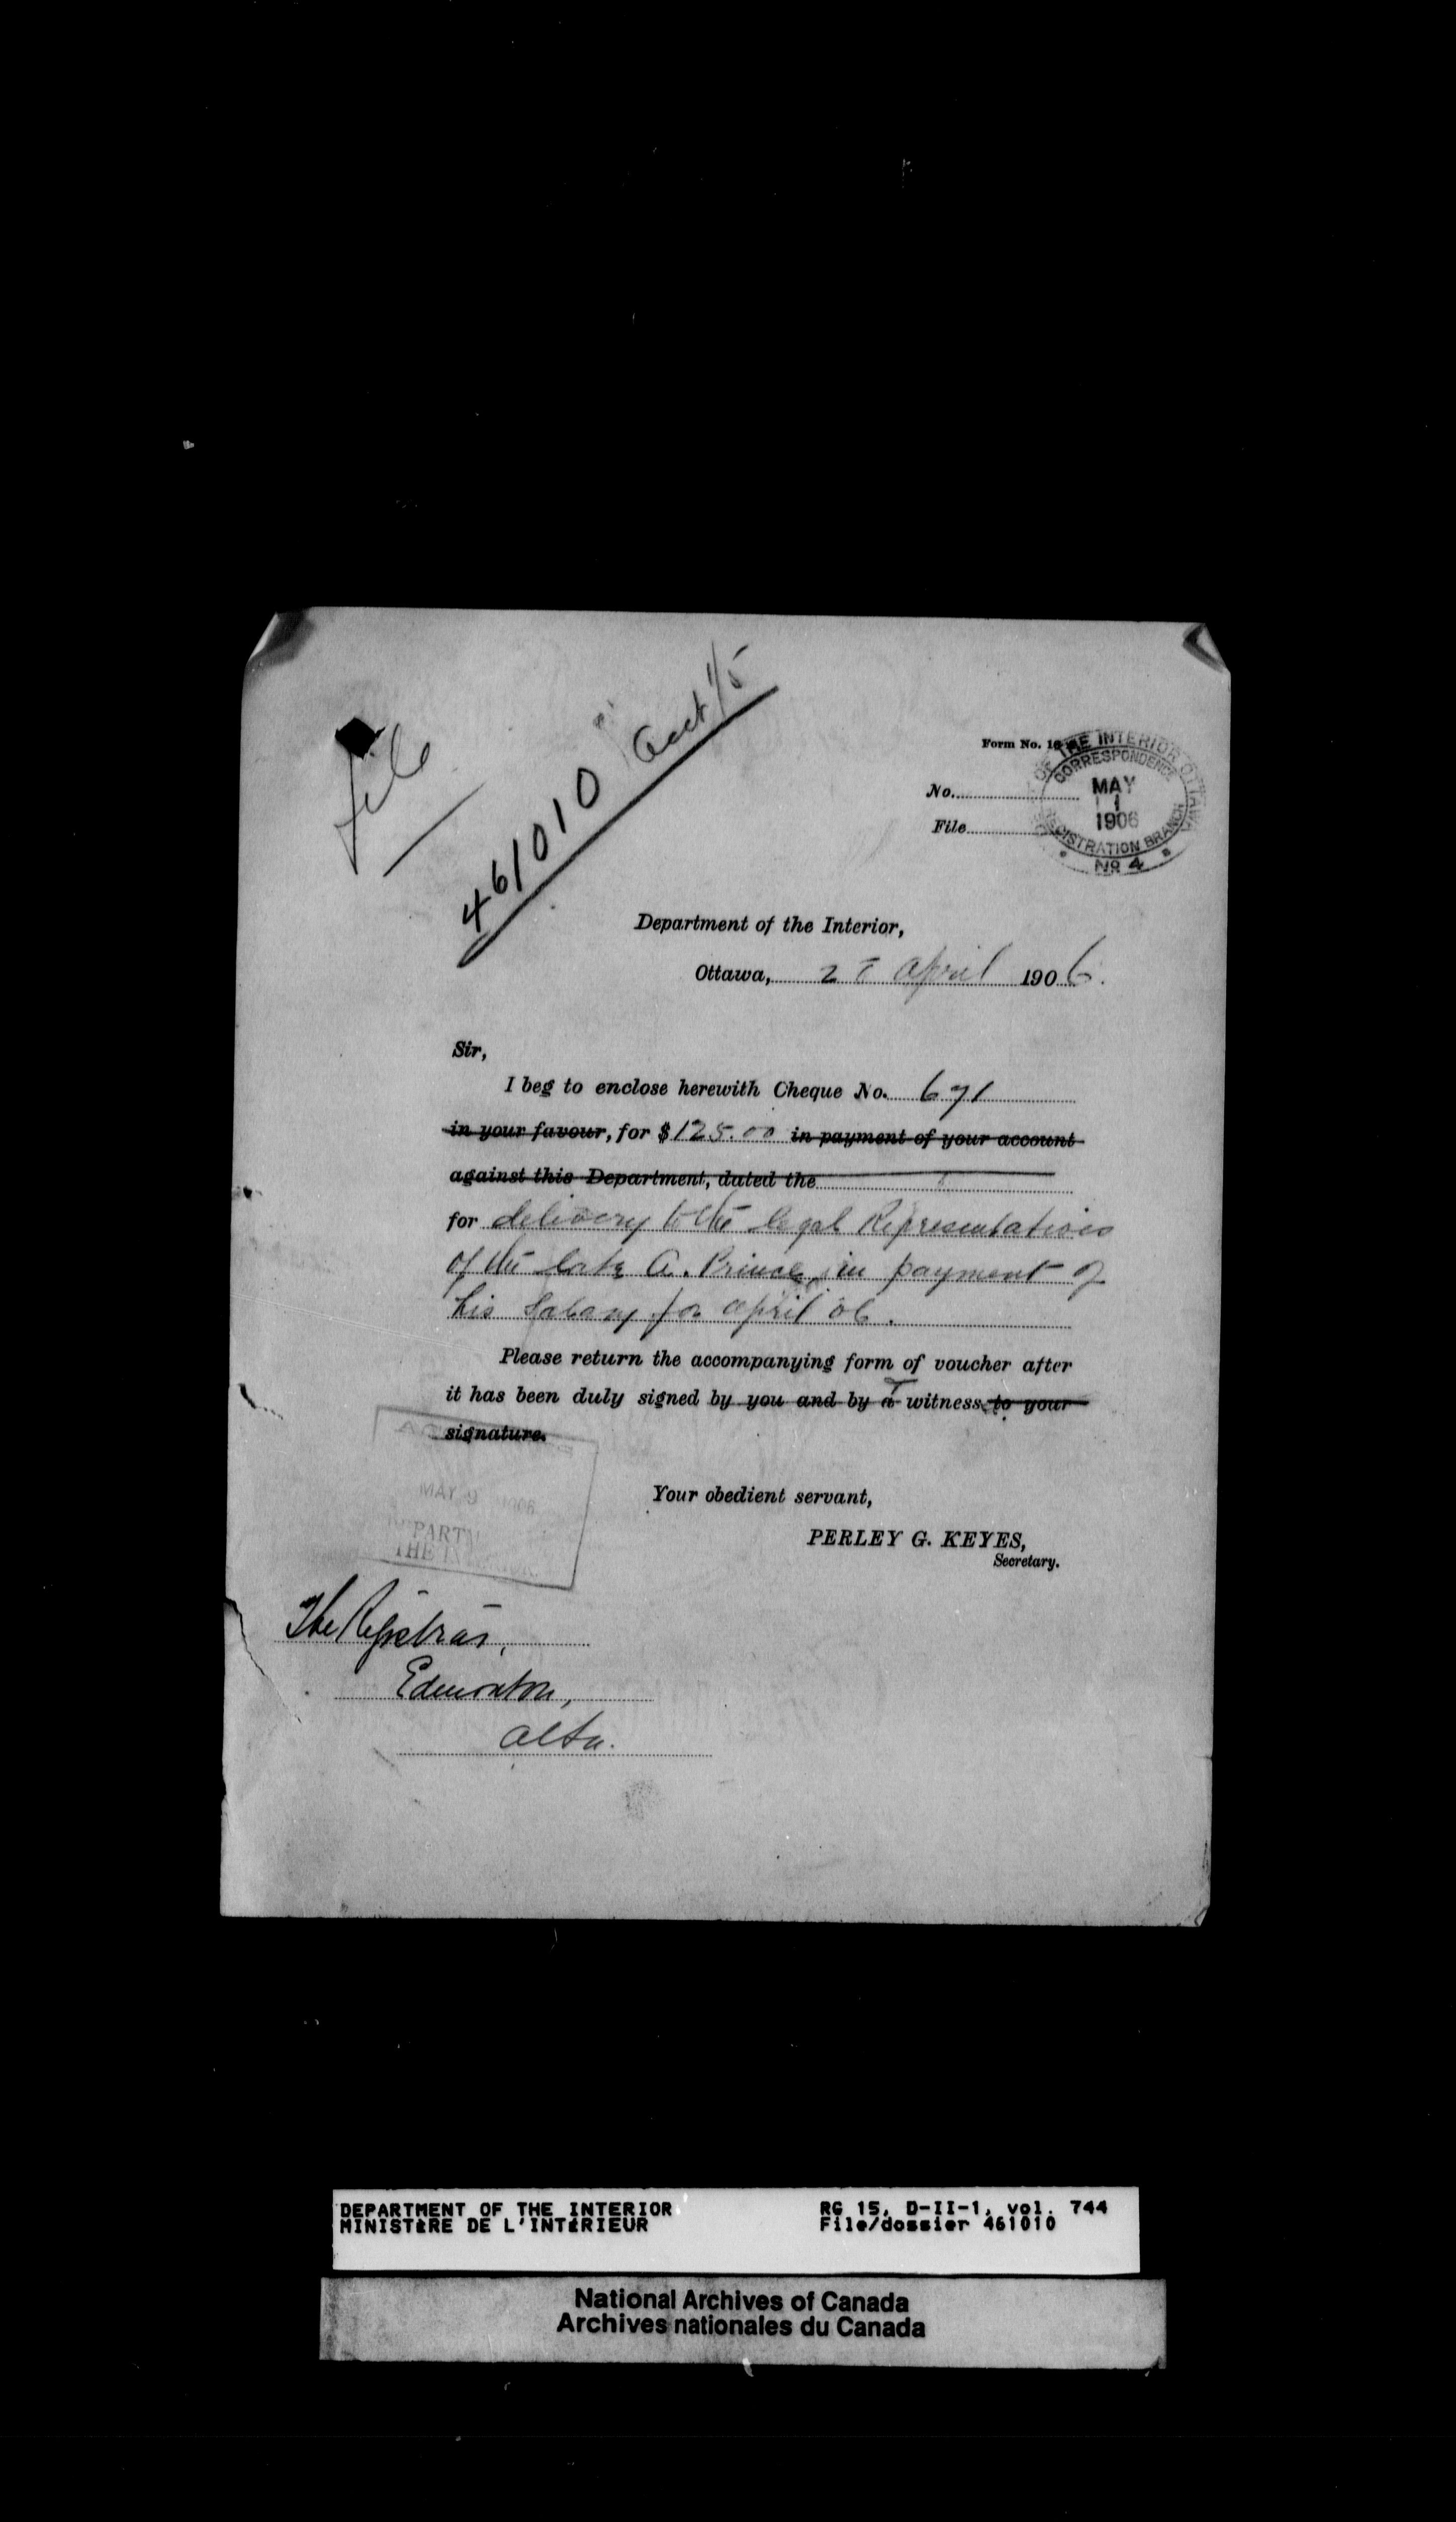 File
461010 Acct 1/5
Form No. 1
OF THE INTERIOR OTTAWA
CORRESPONDENCE
No. MAY
1
1906
File
REGISTRATION BRANCH
No 4
Department of the Interior,
Ottawa, April 1906.
Sir,
I beg to enclose herewith Cheque No. 671
in your favour, for $125.00 in payment of your account
against this Department, dated the
for delivery to the legal Representatives
of the late A. Prince, in payment of
his Salary for April 06.
Please return the accompanying form of voucher after
it has been duly signed by you and by a witness to your
signature.
MAY 9 1906
Your obedient servant,
PERLEY G. KEYES,
Secretary.
The Registrar,
Edmonton,
Alta.
DEPARTMENT OF THE INTERIOR RG 15, D-II-1, vol. 744
MINISTÈRE DE L'INTÉRIEUR File/dossier 461010
National Archives of Canada
Archives nationales du Canada